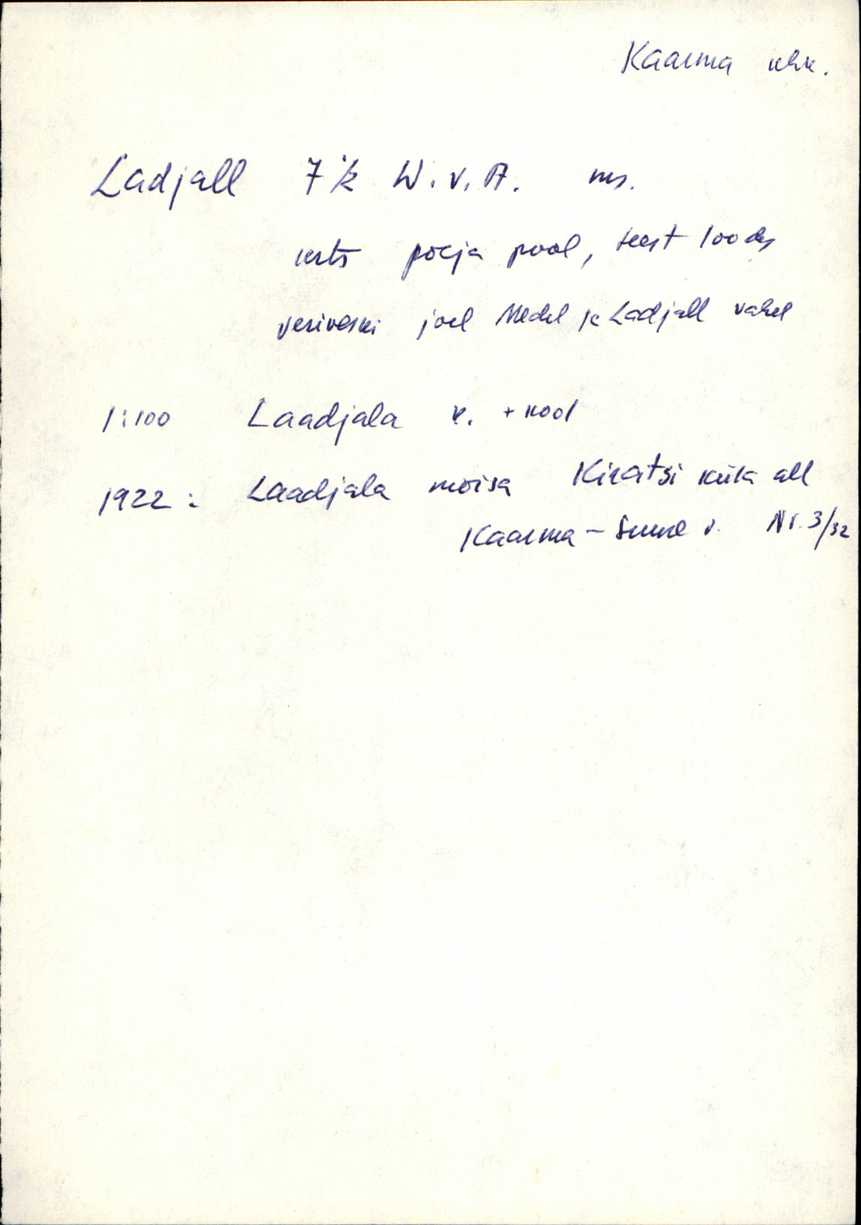 Kaarma khk.
Ladjall 7 k W. v. A. ms.
kõrts põhja pool, teest loodes
vesiveski jõel Medel ja Ladjall vahel
1:100 Laadjala k. + kool
1922: Laadjala mõisa Kiratsi küla all
Kaarma-Suure v. Nr. 3/32